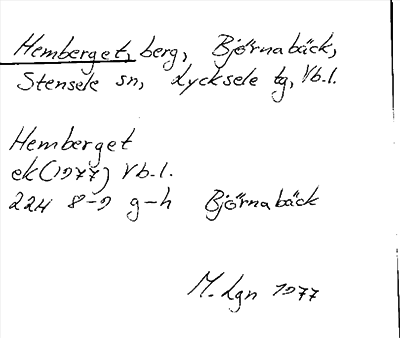 Hemberget, berg, Björnabäck,
Stensele sn, Lycksele tg, Vb.l.
Hemberget
ek (1977) Vb.l.
22H 8-9 g-h Björnabäck
M. Lgn 1977